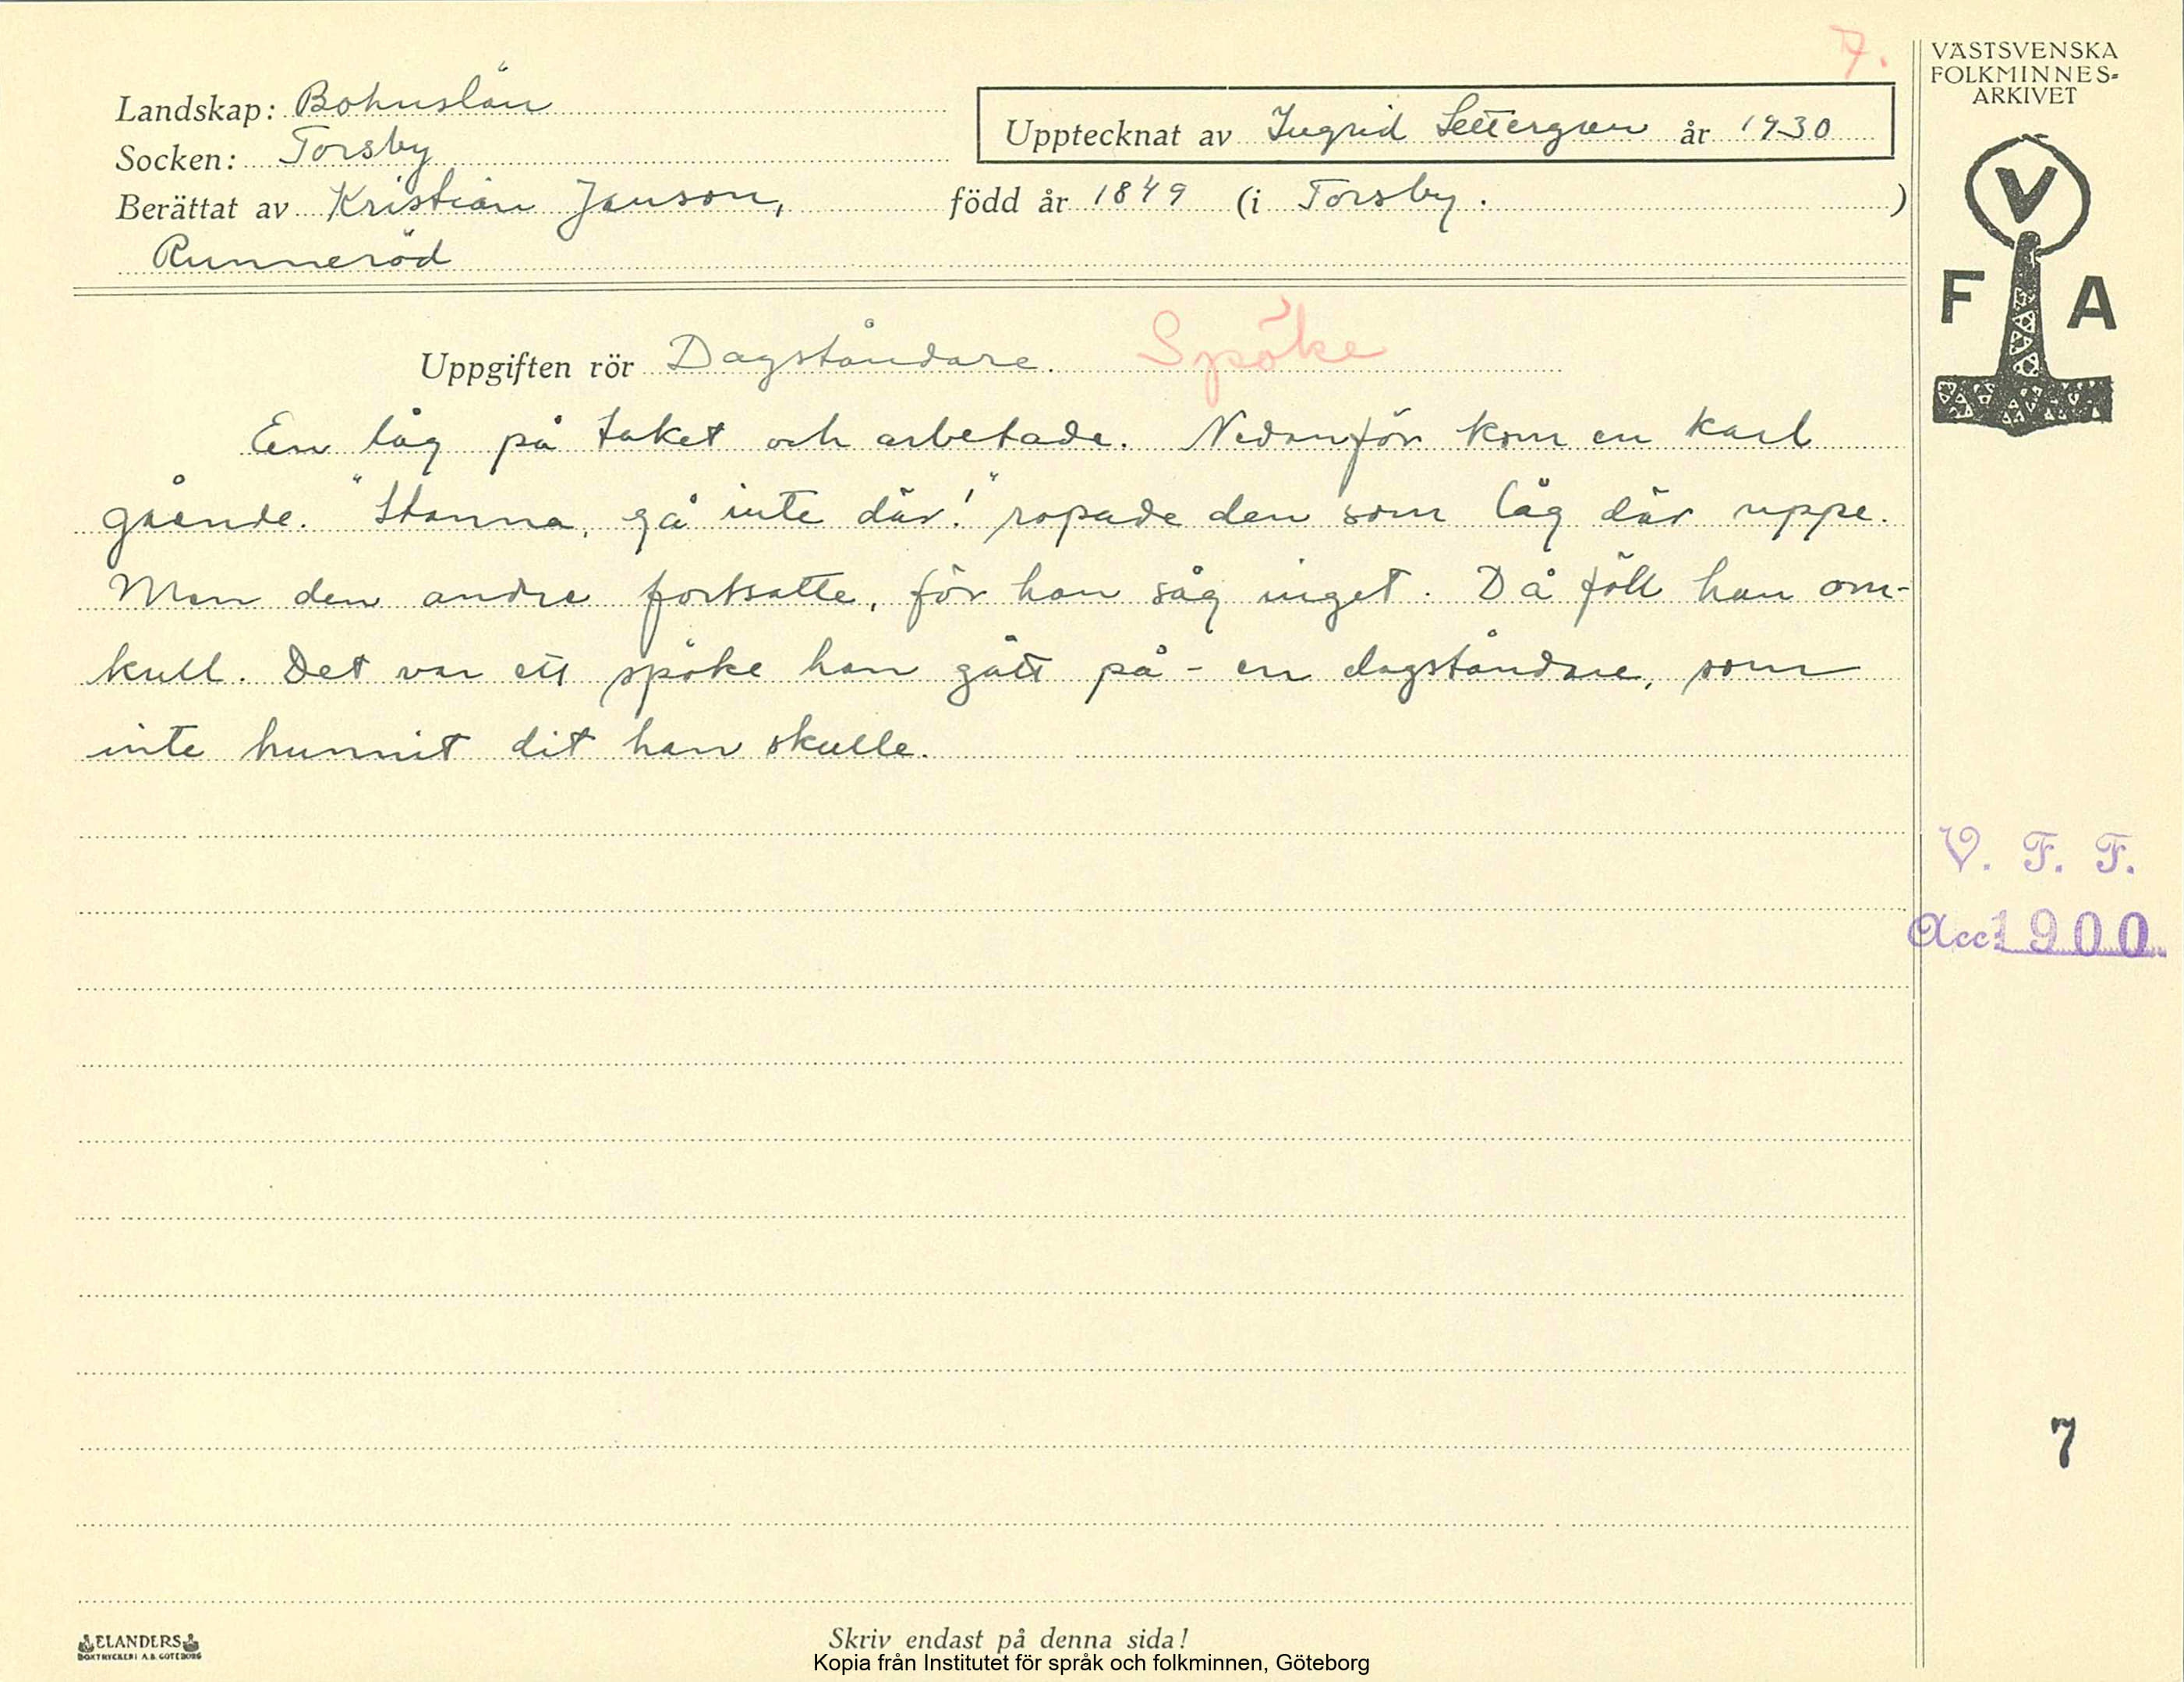 7.
Landskap: Bohuslän
Socken: Torsby
Berättat av Kristian Janson,
Runneröd
Upptecknat av Ingrid Settergren år 1930
född år 1849 (i Torsby. )
VÄSTSVENSKA
FOLKMINNES-
ARKIVET
V
F A
Uppgiften rör Dagståndare. Spöke
En låg på taket och arbetade. Nedanför kom en karl
gående. "Stanna, gå inte där!" ropade den som låg där uppe.
Men den andre fortsatte, för han såg inget. Då föll han om-
kull. Det var ett spöke han gått på - en dagståndare, som
inte hunnit dit han skulle.
V. F. F.
Acc: 1900
7
ELANDERS
BOKTRYCKERI A.B. GÖTEBORG
Skriv endast på denna sida!
Kopia från Institutet för språk och folkminnen, Göteborg